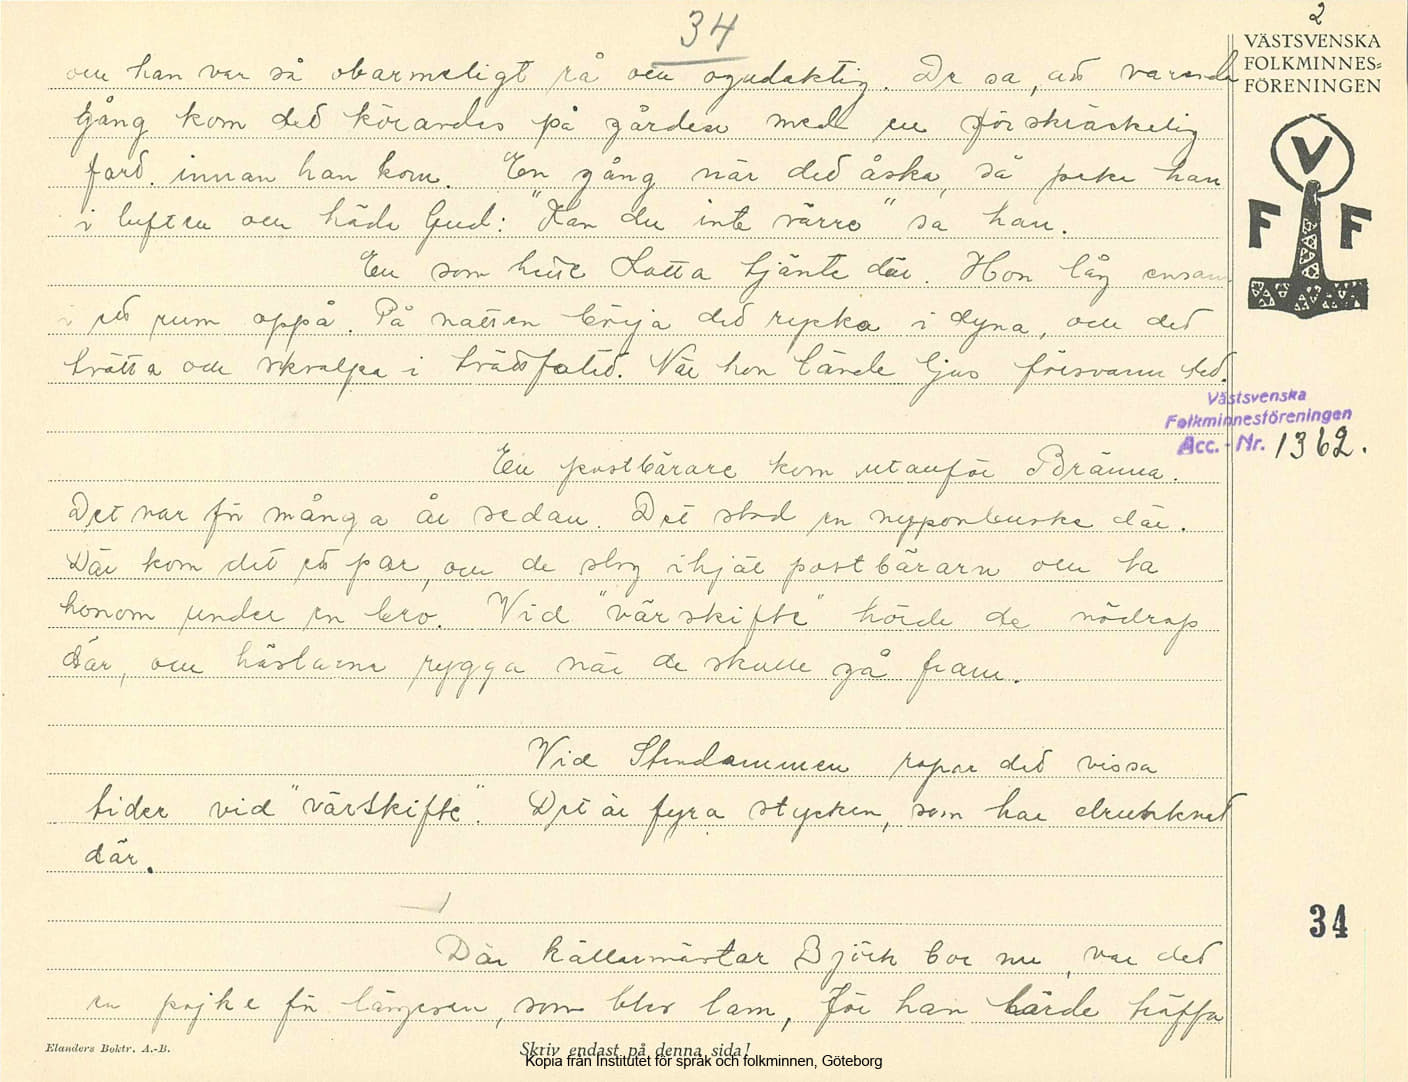 34
2
VÄSTSVENSKA
FOLKMINNES-
FÖRENINGEN
V
F F
och han var så obarmeligt rå och ogudaktig. De sa, att varenda
gång kom ded körandes på gården med en förskräckelig
fard innan han kom. En gång när ded åska, så peke han
i luften och häde Gud: "Kan du inte värre" sa han.
En som hette Lotta tjänte där. Hon låg ensam
i ett rum oppå. På natten börja ded rycka i dyna, och det
tvätta och skvalpa i tvättfated. När hon tände ljus försvann ded.
Västsvenska
Folkminnesföreningen
Acc. - Nr. 1362.
En postbärare kom utanför Bränna.
Det var för många år sedan. Det stod en nyponbuske där.
Där kom det ett par, och de slog ihjäl postbärarn och la
honom under en bro. Vid "värskifte" hörde de nödrop
där, och hästarna rygga när de skulle gå fram.
Vid Stendammen ropar ded vissa
tider vid "värskifte". Det är fyra stycken, som har drunknat
där.
34
Där källarmästar Björk bor nu, var ded
en pojke för längesen, som blev lam, för han lärde träffa
Elanders Boktr. A.-B.
Skriv endast på denna sida!
Kopia från Institutet för språk och folkminnen, Göteborg